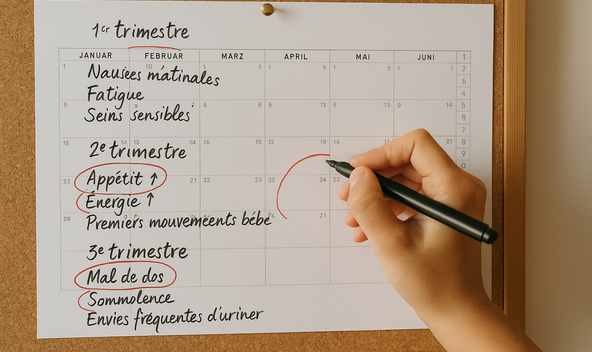 1er trimestre
JANUAR FEBRUAR MARZ APRIL MAI JUNI
Nausées mátinales
Fatigue
Seins sensibles
2e trimestre
Appétit ↑
Énergie ↑
Premiers mouvemeents bébé
3e trimestre
Mal de dos
Sommolence
Envies fréquentes d'uriner